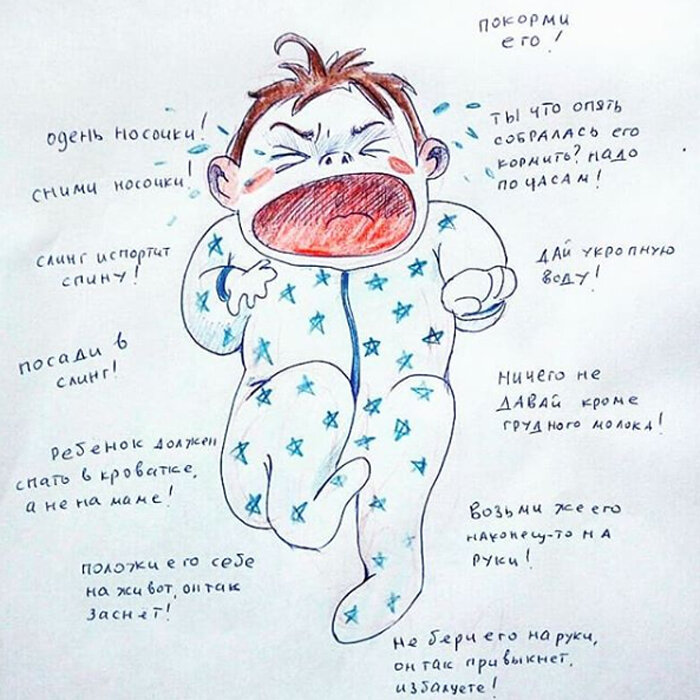 покорми
его!
одень носочки!
сними носочки!
слинг испортит
спину!
посади в
слинг!
ребенок должен
спать в кроватке,
а не на маме!
положи его себе
на живот, он так
заснёт!
ты что опять
собралась его
кормить? надо
по часам!
дай укропную
воду!
ничего не
давай кроме
грудного молока!
возьми же его
наконец-то на
руки!
не бери его на руки,
он так привыкнет,
избалуете!